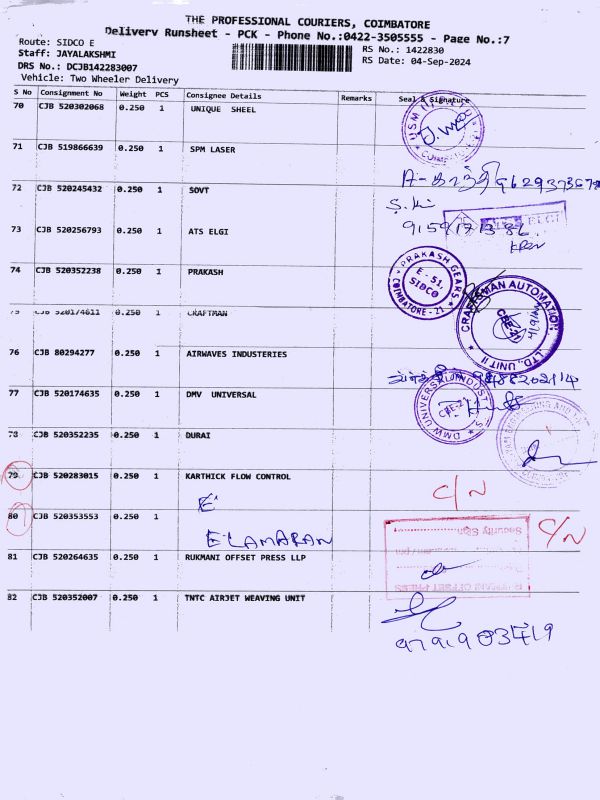 THE PROFESSIONAL COURIERS, COIMBATORE
Delivery Runsheet - PCK - Phone No.:0422-3505555 - Page No.:7
Route: SIDCO E
RS No.: 1422830
Staff: JAYALAKSHMI
RS Date: 04-Sep-2024
DRS No.: DCJB142283007
Vehicle: Two Wheeler Delivery
S No Consignment No Weight PCS Consignee Details Remarks Seal & Signature
70 CJB 520302068 0.250 1 UNIQUE SHEEL
71 CJB 519866639 0.250 1 SPM LASER
72 CJB 520245432 0.250 1 SOVT
73 CJB 520256793 0.250 1 ATS ELGI
74 CJB 520352238 0.250 1 PRAKASH
PRAKASH GEARS
E - 51,
SIDCO
COIMBATORE - 21
75 CJB 520174611 0.250 1 CRAFTMAN
CRAFTSMAN AUTOMATION
LTD., UNIT II
CBE-21
76 CJB 80294277 0.250 1 AIRWAVES INDUSTERIES
77 CJB 520174635 0.250 1 DMV UNIVERSAL
DMW UNIVERSAL INDUSTRIES
CBE-21
78 CJB 520352235 0.250 1 DURAI
79 CJB 520283015 0.250 1 KARTHICK FLOW CONTROL
C/N
E
80 CJB 520353553 0.250 1
ELAMARAN
C/N
Security Sign
81 CJB 520264635 0.250 1 RUKMANI OFFSET PRESS LLP
RUKMANI OFFSET PRESS
82 CJB 520352007 0.250 1 TNTC AIRJET WEAVING UNIT
9791903419